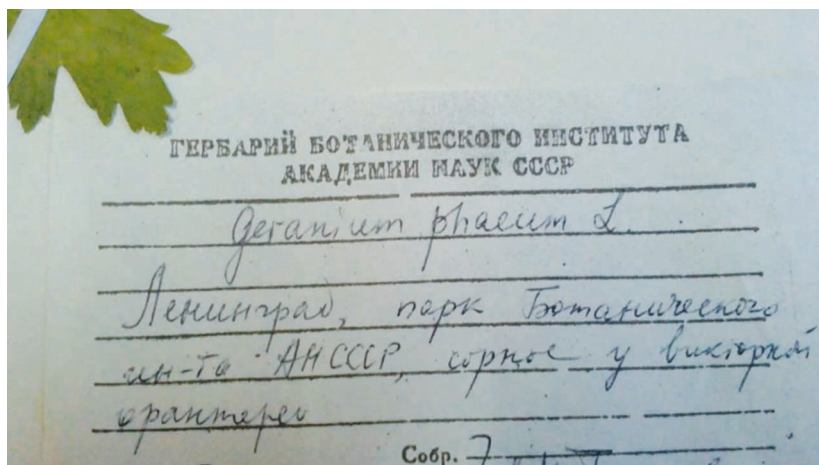 ГЕРБАРИЙ БОТАНИЧЕСКОГО ИНСТИТУТА
АКАДЕМИИ НАУК СССР
Geranium phaeum L.
Ленинград, парк Ботанического
ин-та АН СССР, сорное у викторной
оранжереи
Собр. 7